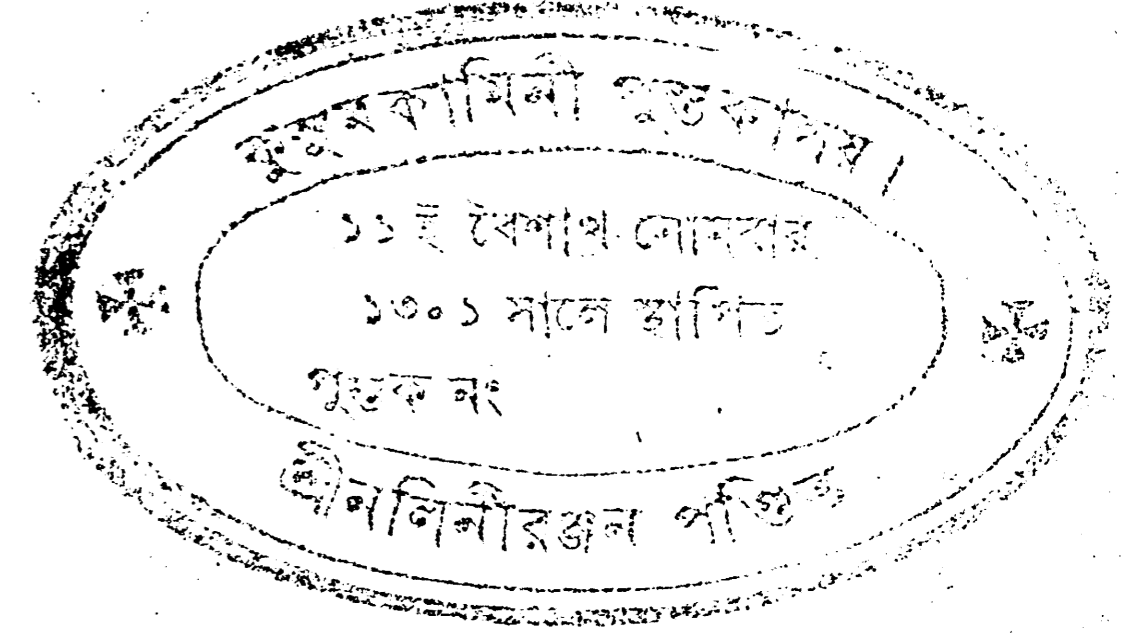 কুসুমকামিনী পুস্তকালয়।
১১ই বৈশাখ সোমবার
১৩০১ সালে স্থাপিত
পুস্তক নং
শ্রীনলিনীরঞ্জন পণ্ডিত